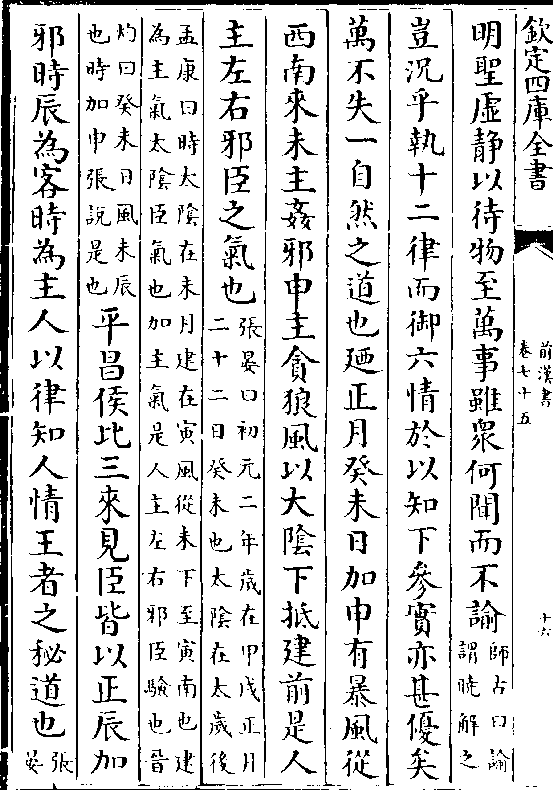 欽定四庫全書
前漢書
卷七十五
十六
明聖虛静以待物至萬事雖衆何聞而不諭
師古曰諭
謂曉解之
豈況乎執十二律而御六情於以知下參實亦甚優矣
萬不失一自然之道也廼正月癸未日加申有暴風從
西南來未主姦邪申主貪狼風以大隂下抵建前是人
主左右邪臣之氣也
張晏曰初元二年歲在甲戌正月
二十二日癸未也太隂在太歲後
孟康曰時太隂在未月建在寅風從未下至寅南也建
為主氣太隂臣氣也加主氣是人主左右邪臣驗也晉
灼曰癸未日風未辰
也時加申張說是也
平昌侯比三來見臣皆以正辰加
邪時辰為客時為主人以律知人情王者之秘道也
張
晏